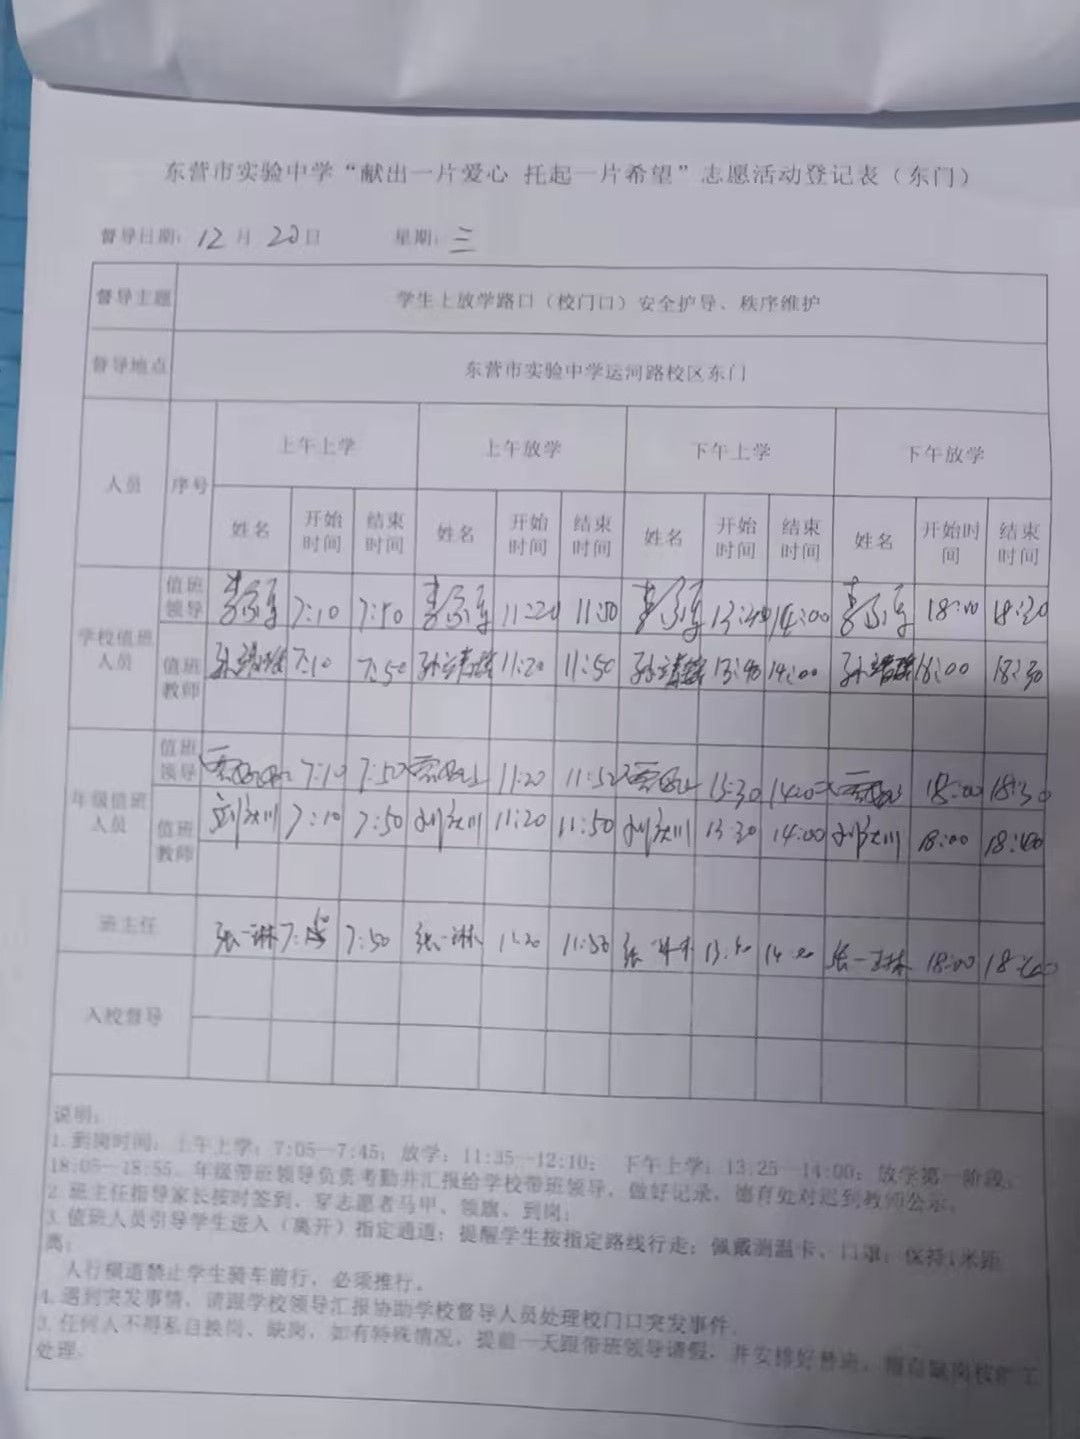 东营市实验中学“献出一片爱心 托起一片希望”志愿活动登记表（东门）
督导日期：12月20日 星期：三
督导主题 学生上放学路口（校门口）安全护导、秩序维护
督导地点 东营市实验中学运河路校区东门
人员 序号 上午上学 上午放学 下午上学 下午放学
姓名 开始时间 结束时间 姓名 开始时间 结束时间 姓名 开始时间 结束时间 姓名 开始时间 结束时间
学校值班人员 值班领导 7:10 7:50 11:20 11:50 13:40 14:00 18:00 18:30
值班教师 7:10 7:50 11:20 11:50 13:40 14:00 18:00 18:30
年级值班人员 值班领导 7:10 7:50 11:20 11:50 14:00 18:00 18:30
值班教师 7:10 7:50 11:20 11:50 13:30 14:00 18:00
班主任 张一琳 7:50 张一琳 11:20 张一琳 张一琳 18:00
入校督导
说明：
1. 到岗时间：上午上学：7:05—7:45；放学：11:35—12:10； 下午上学：13:25—14:00；放学第一阶段：
18:05—18:55。年级带班领导负责考勤并汇报给学校带班领导，做好记录，德育处对迟到教师公示。
2. 班主任指导家长按时签到、穿志愿者马甲、领旗、到岗；
3. 值班人员引导学生进入（离开）指定通道；提醒学生按指定路线行走；佩戴测温卡、口罩；保持1米距
离；
人行横道禁止学生骑车前行，必须推行。
4. 遇到突发事情，请跟学校领导汇报协助学校督导人员处理校门口突发事件。
3. 任何人不得私自换岗、缺岗，如有特殊情况，提前一天跟带班领导请假，并安排好替岗，擅自缺岗按旷工
处理。